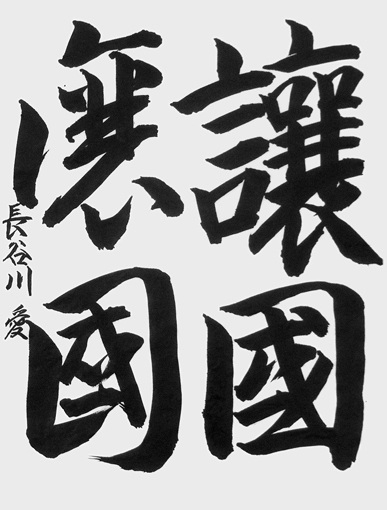 讓國
讓國
長谷川 愛